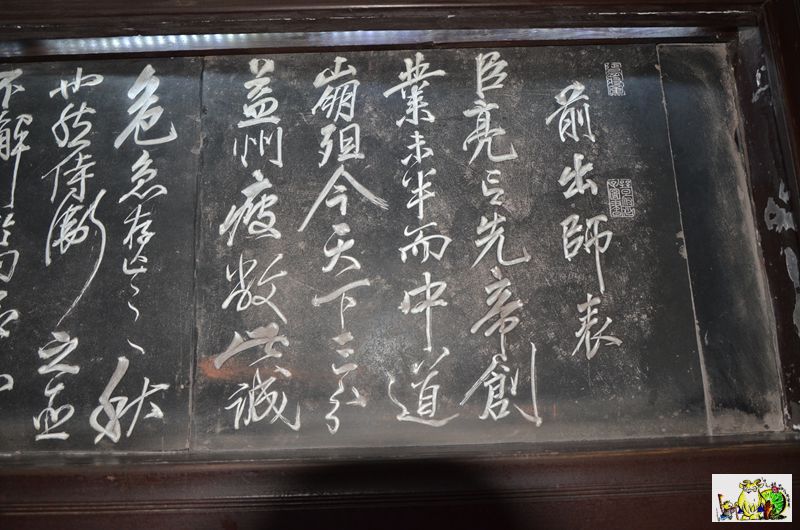 前出師表
臣亮言先帝創
業未半而中道
崩殂今天下三分
益州疲敝此誠
危急存亡之秋
也然侍衛之臣
不解於內